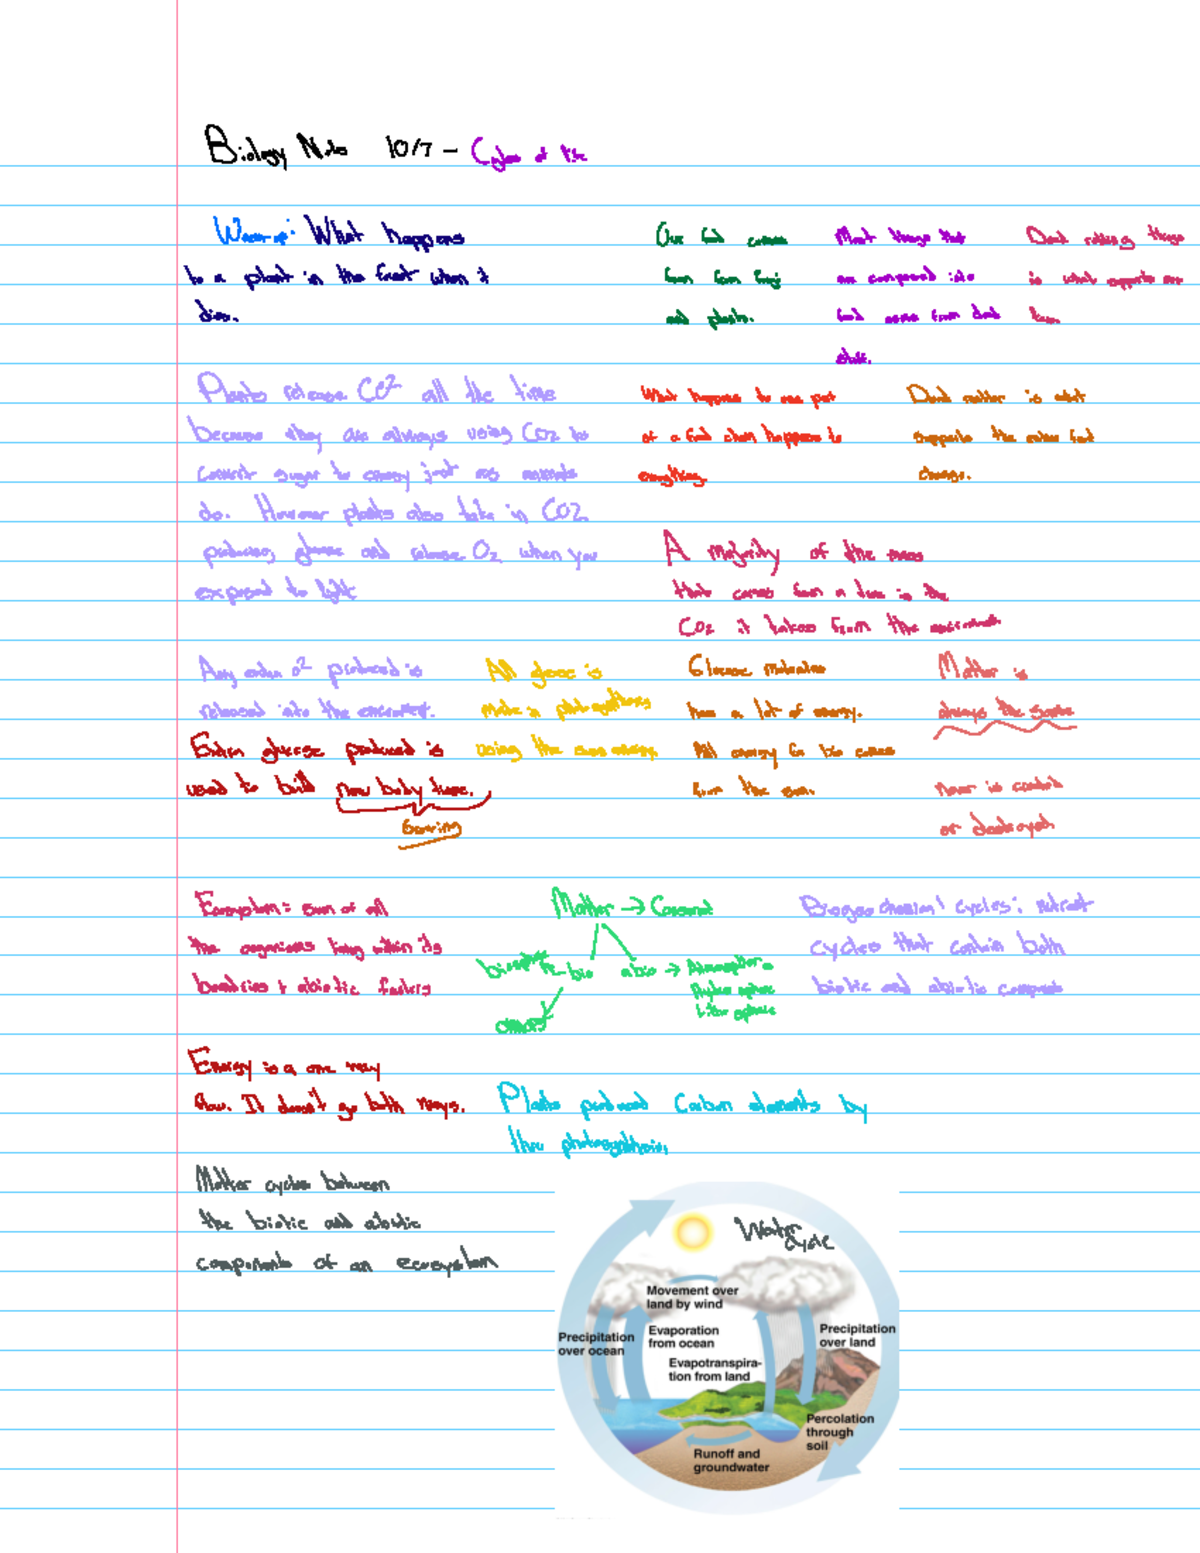 Biology Notes 10/7 - Cycles of life
Warm-up: What happens
to a plant in the forest when it
dies.
Our food comes
from fungi
and plants.
Most things that
are composed into
food come from dead
stuff.
Dead things
is what supports
Plants release CO² all the time
because they are always using CO2 to
convert sugar to energy just as animals
do. However plants also take in CO2
produces, glucose and release O2 when you
exposed to light
What happens to one part
of a food chain happens to
everything.
Dead matter is what
supports the entire food
change.
A majority of the mass
that comes from a tree is the
CO2 it takes from the environment
Any extra O² produced is
released into the environment.
All glucose is
made in photosynthesis
using the suns energy
Glucose molecules
has a lot of energy.
All energy for bio comes
from the sun.
Matter is
always the same
never is created
or destroyed
Extra glucose produced is
used to build new body tissue.
Growing
Ecosystem: sum of all
the organisms living within its
boundaries + abiotic factors
Matter → Conserved
biosphere - bio abio → Atmosphere
Hydrosphere
Lithosphere
Biogeochemical cycles: nutrient
cycles that contain both
biotic and abiotic components
Energy is a one way
flow. It doesn't go both ways.
Plants produced Carbon elements by
thru photosynthesis.
Matter cycles between
the biotic and abiotic
components of an ecosystem
Water
cycle
Movement over
land by wind
Precipitation
over ocean
Evaporation
from ocean
Precipitation
over land
Evapotranspira-
tion from land
Percolation
through
soil
Runoff and
groundwater